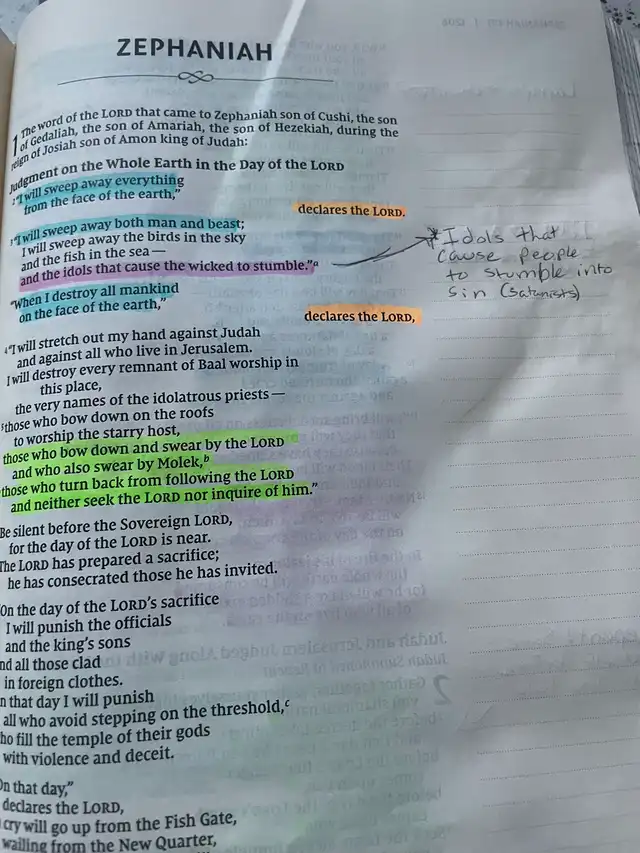 ZEPHANIAH
1 The word of the LORD that came to Zephaniah son of Cushi, the son
of Gedaliah, the son of Amariah, the son of Hezekiah, during the
reign of Josiah son of Amon king of Judah:
Judgment on the Whole Earth in the Day of the LORD
2 "I will sweep away everything
from the face of the earth,"
declares the LORD.
3 "I will sweep away both man and beast;
I will sweep away the birds in the sky
and the fish in the sea —
and the idols that cause the wicked to stumble."a
* Idols that
cause people
to stumble into
sin (satanists)
"When I destroy all mankind
on the face of the earth,"
declares the LORD,
4 "I will stretch out my hand against Judah
and against all who live in Jerusalem.
I will destroy every remnant of Baal worship in
this place,
the very names of the idolatrous priests —
5 those who bow down on the roofs
to worship the starry host,
those who bow down and swear by the LORD
and who also swear by Molek,b
those who turn back from following the LORD
and neither seek the LORD nor inquire of him."
Be silent before the Sovereign LORD,
for the day of the LORD is near.
The LORD has prepared a sacrifice;
he has consecrated those he has invited.
"On the day of the LORD's sacrifice
I will punish the officials
and the king's sons
nd all those clad
in foreign clothes.
n that day I will punish
all who avoid stepping on the threshold,c
ho fill the temple of their gods
with violence and deceit.
On that day,"
declares the LORD,
cry will go up from the Fish Gate,
wailing from the New Quarter,